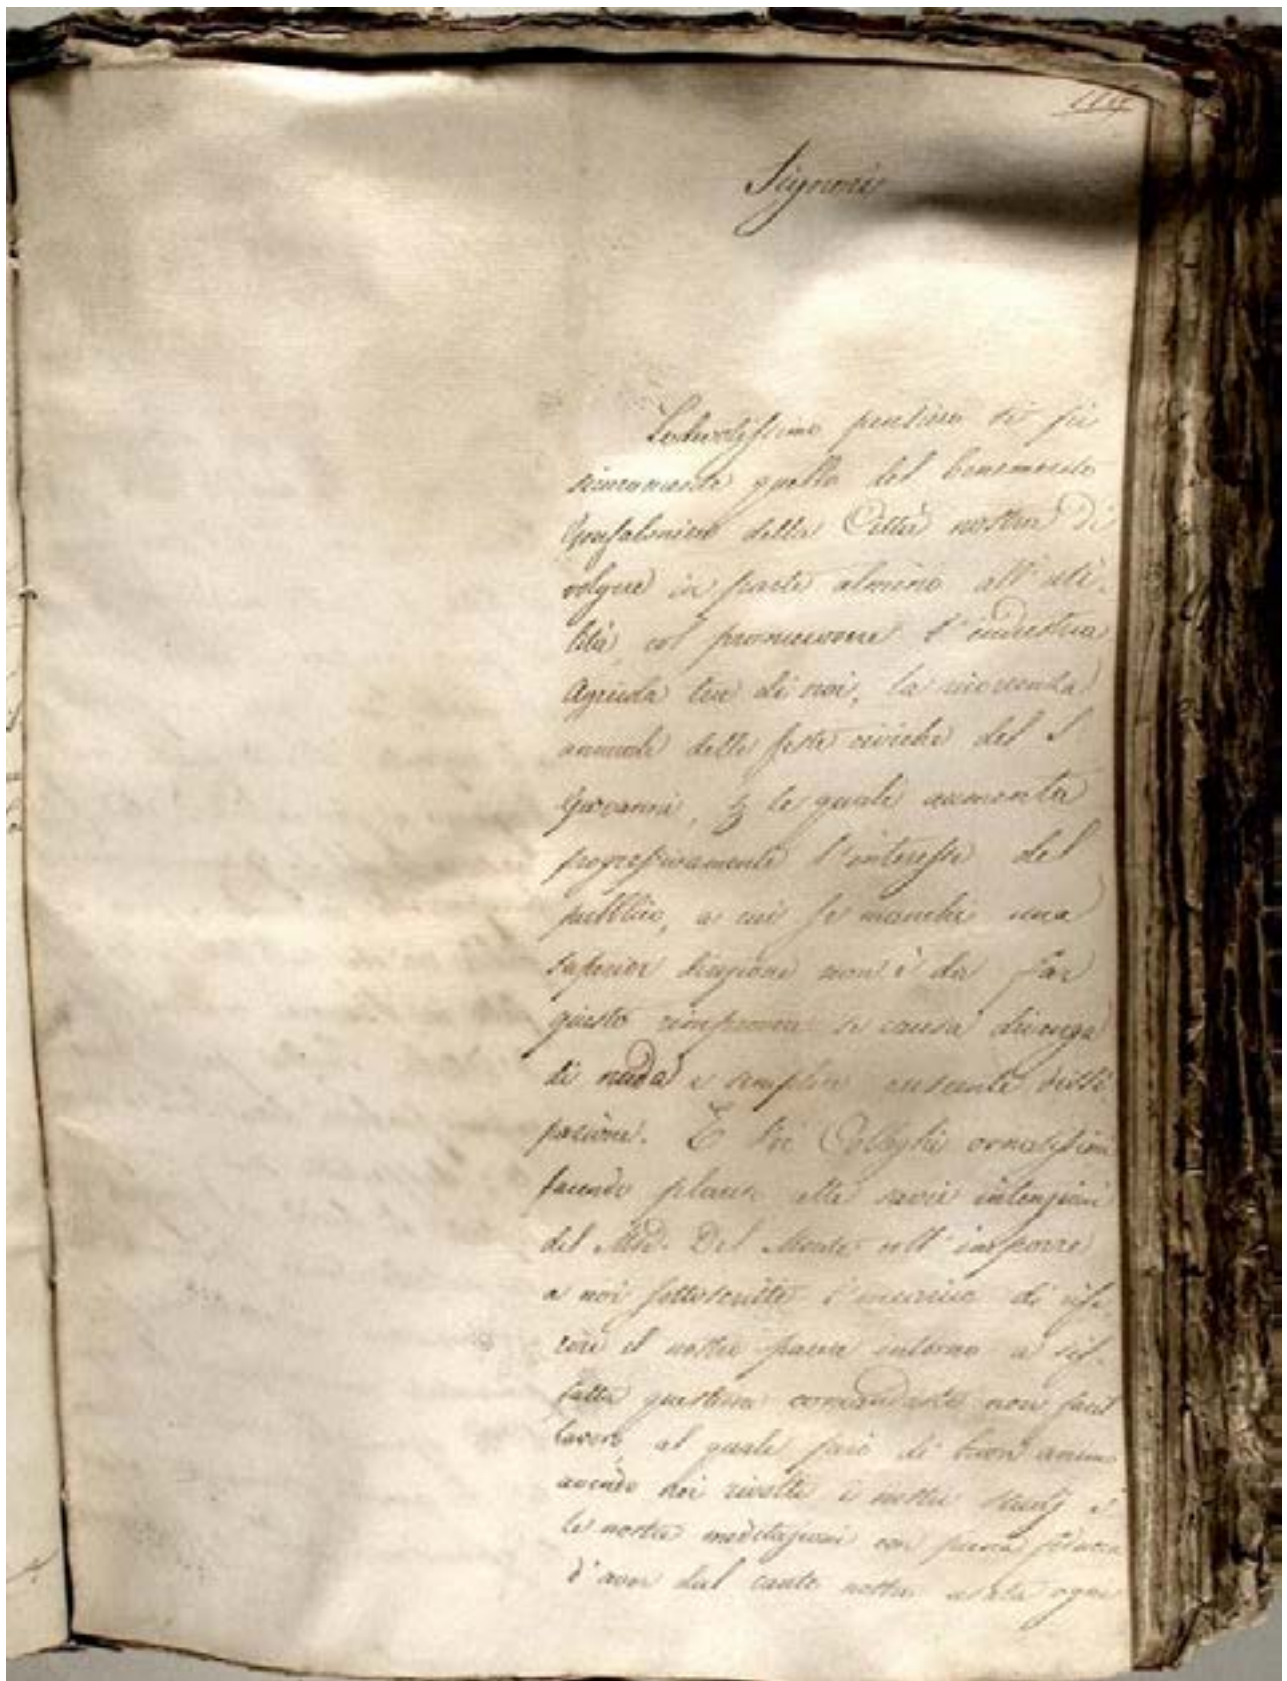 Signori
Lodevolissimo pensiero si fu
sicuramente quello del benemerito
Gonfaloniere della Città nostra di
volgere in parte almeno all'uti-
lità, col promuovere l'industria
Agricola tra di noi, la ricorrenza
annuale delle feste civiche del S
Giovanni, le quali aumenta
progressivamente l'interesse del
pubblico, a cui se manchi una
superior direzione non è da far
questo rimprovero se causa divenga
di nuda e semplice dissi
pazione. E Voi Colleghi ornatissimi
facendo plauso alle savie intenzioni
del Del Monte coll'imporre
a noi sottoscritti l'incarico di rife-
rire il nostro parere intorno a sif-
fatta questione comandaste non facil
lavoro al quale di buon animo
avendo noi rivolti i nostri studj e
le nostre meditazioni con piena fiducia
d'aver dal canto nostro usata ogni